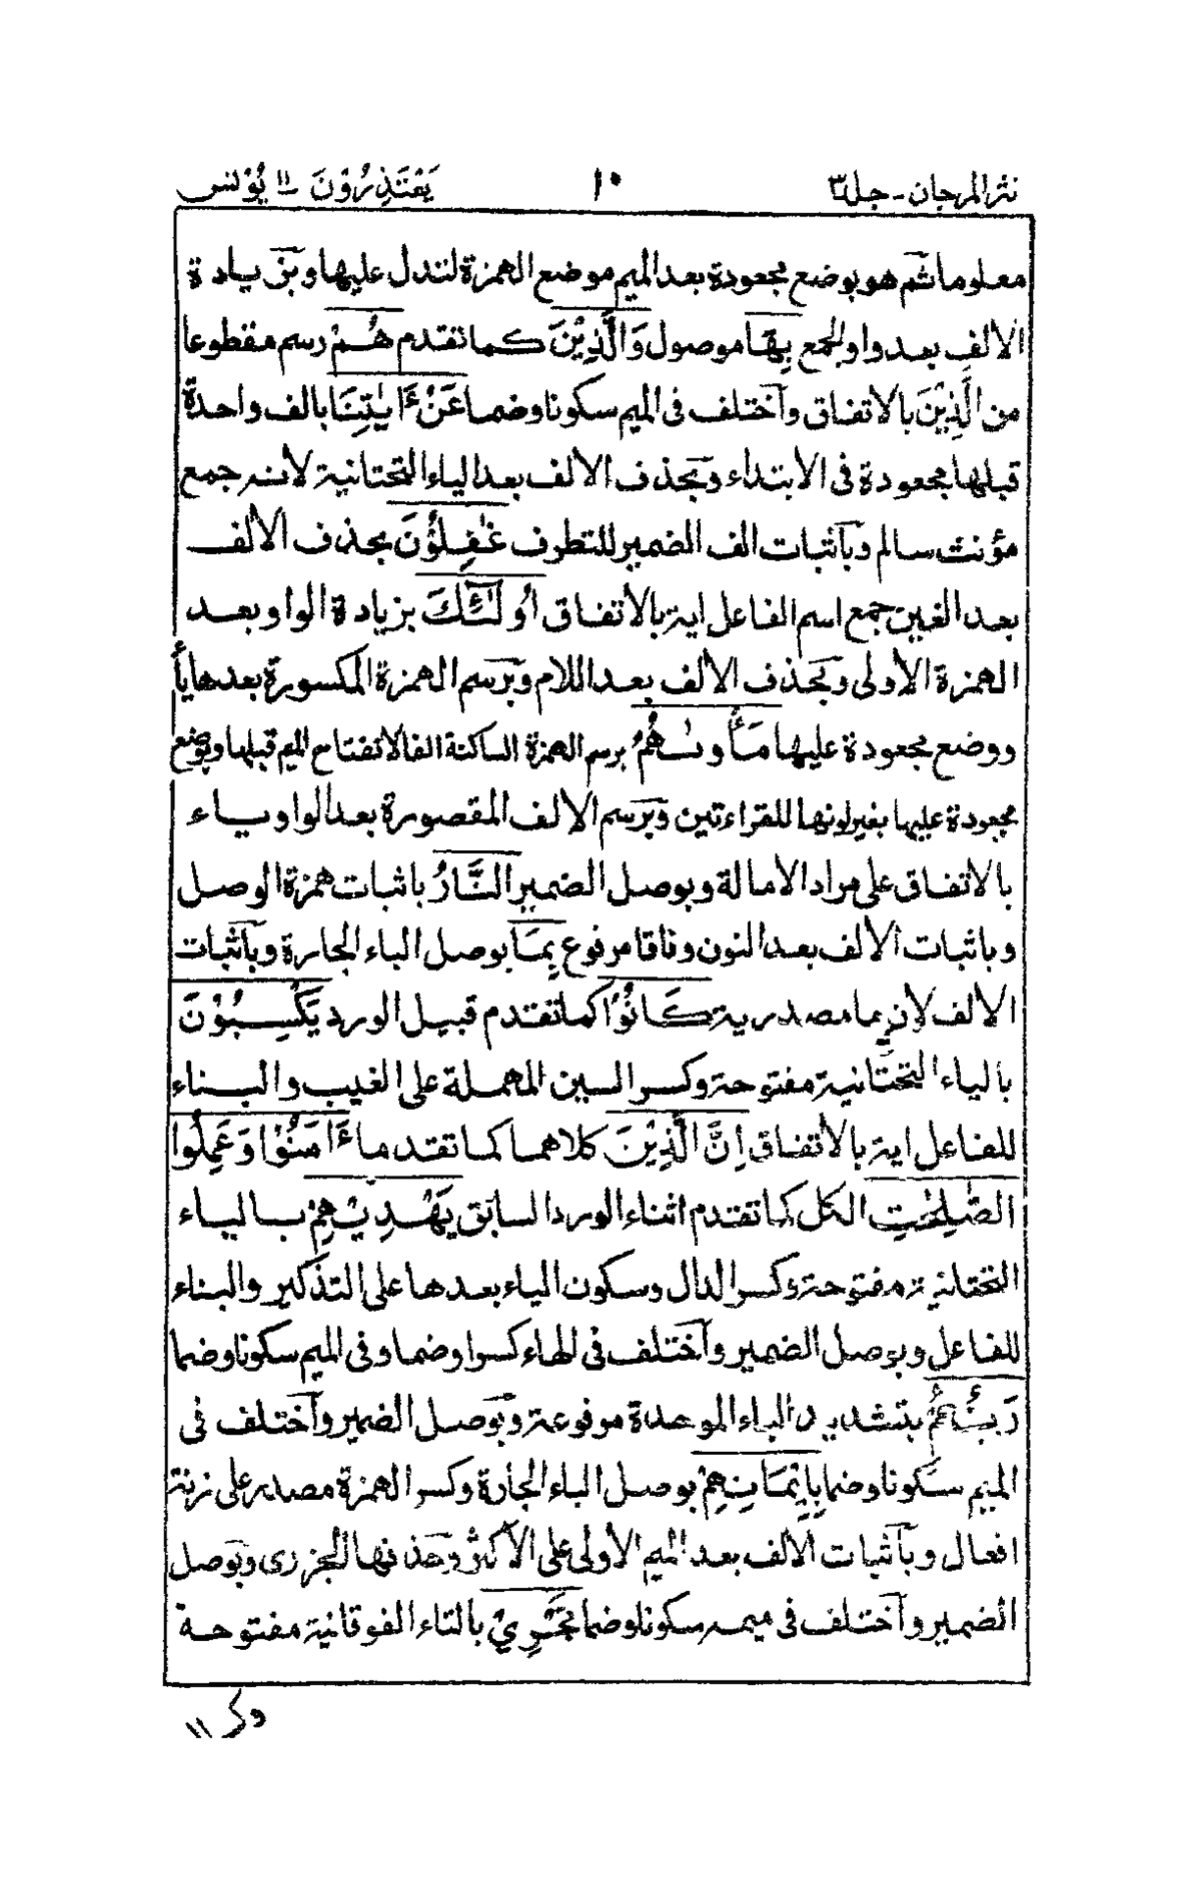 نثر المرجان - جلد ٣ ١٠ يَعْتَذِرُوْنَ ١١ يُوْنس
معلوما ثم هو بوضع مجعودة بعد الميم موضع الهمزة لتدل عليها وبزيادة
الالف بعد واو الجمع بِهَا موصول وَالَّذِيْنَ كما تقدم هُمْ رسم مقطوعا
من الَّذِيْنَ بالاتفاق وآختلف فى الميم سكونا وضما عَنْ ءَايٰتِنَا بالف واحدة
قبلها مجعودة فى الابتداء وبحذف الالف بعد الياء التحتانية لانه جمع
مؤنث سالم وبآثبات الف الضمير للتطرف غٰفِلُوْنَ بحذف الالف
بعد الغين جمع اسم الفاعل اية بالاتفاق أُولٰٓئِكَ بزيادة الواو بعد
الهمزة الأولى وبحذف الألف بعد اللام وبرسم الهمزة المكسورة بعدها ياً
ووضع مجعودة عليها مَأْوٰىهُمُ برسم الهمزة الساكنة الفا لانفتاح الميم قبلها وبوضع
مجعودة عليها بغير لونها للقراءتين وبرسم الالف المقصورة بعد الواو ياء
بالاتفاق على مراد الامالة وبوصل الضمير النَّارُ باثبات همزة الوصل
وباثبات الألف بعد النون وفاقا مرفوع بِمَا بوصل الباء الجارة وبآثبات
الالف لان ما مصدرية كَانُوْا كما تقدم قبيل الورد يَكْسِبُوْنَ
بالياء التحتانية مفتوحة وكسر السين المهملة على الغيب والبناء
للفاعل اية بالاتفاق اِنَّ الَّذِيْنَ كلاهما كما تقدما ءَامَنُوْا وَعَمِلُوا
الصّٰلِحٰتِ الكل كما تقدم اثناء الورد السابق يَهْدِيْهِمْ بالياء
التحتانية مفتوحة وكسر الدال وسكون الياء بعدها على التذكير والبناء
للفاعل وبوصل الضمير وآختلف فى الهاء كسرا وضما وفى الميم سكونا وضما
رَبُّهُمْ بتشديد الباء الموحدة مرفوعة وبوصل الضمير وآختلف فى
الميم سكونا وضما بِاِيْمَانِهِمْ بوصل الباء الجارة وكسر الهمزة مصدر على زنة
افعال وبآثبات الألف بعد الميم الأولى على الأكثر وحذفها الجزرى وبوصل
الضمير وآختلف فى ميمه سكونا وضما تَجْرِيْ بالتاء الفوقانية مفتوحة
وكـ ١١